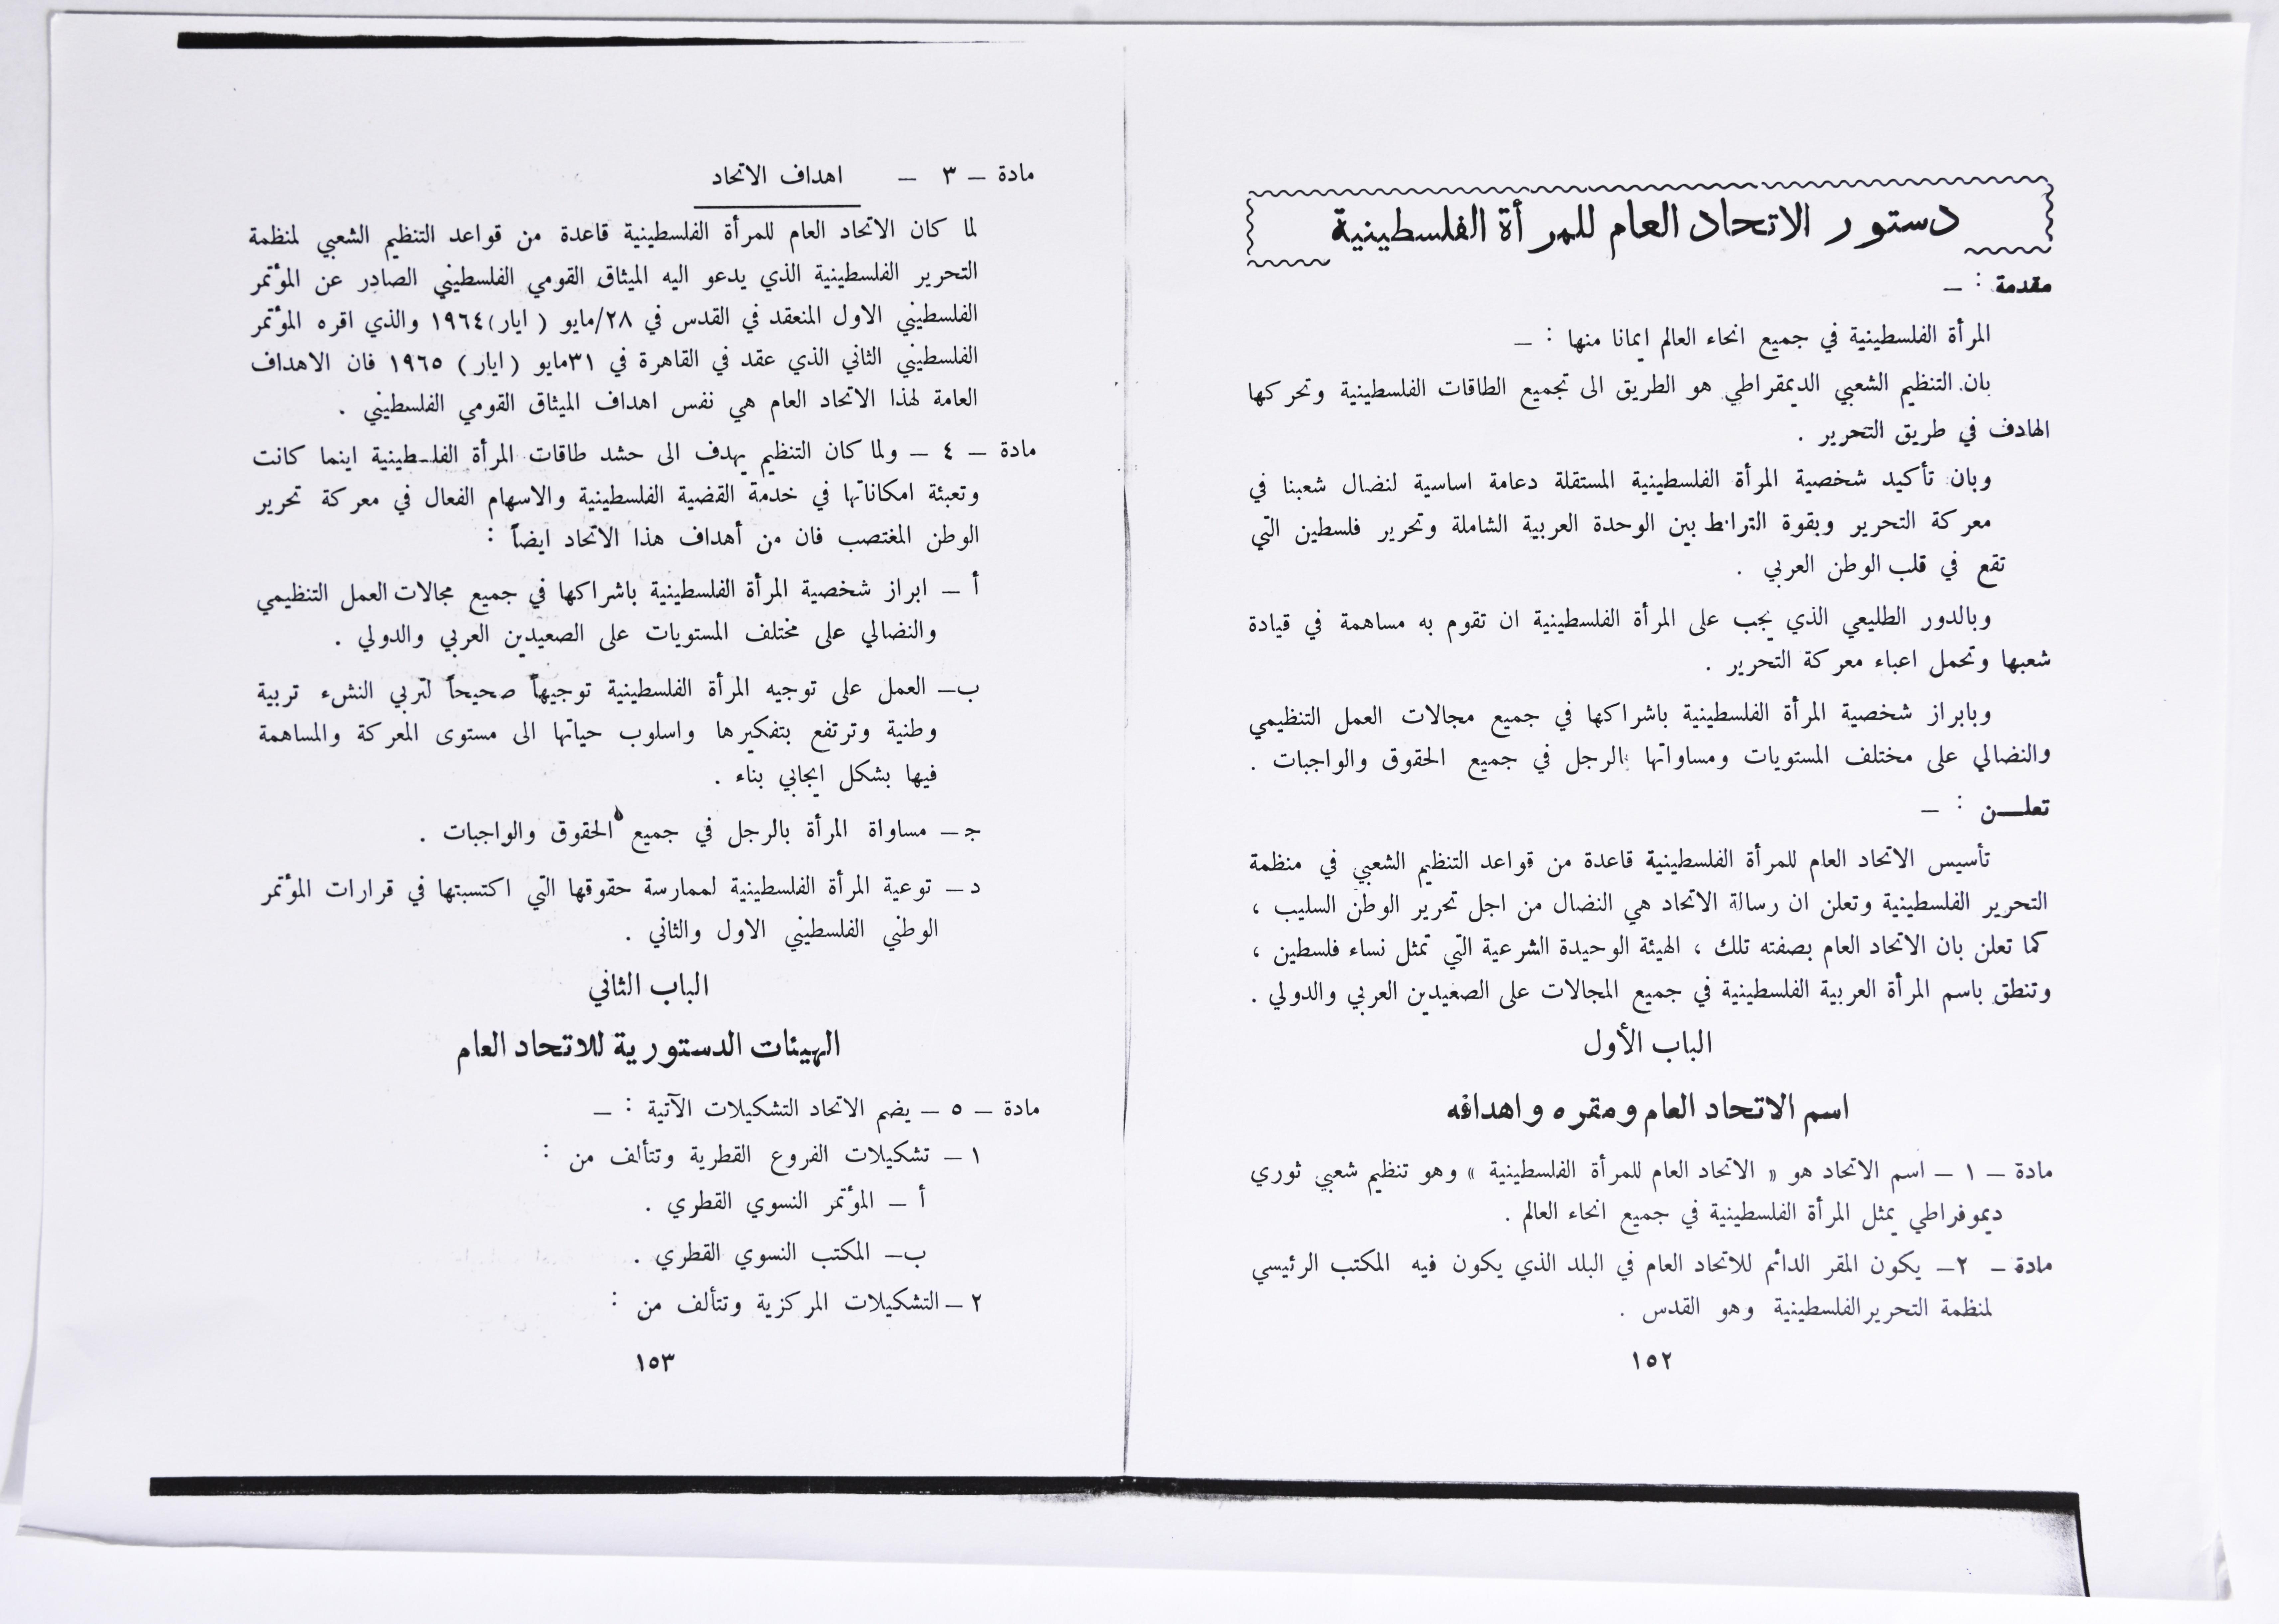 دستور الاتحاد العام للمرأة الفلسطينية
مقدمة : —
المرأة الفلسطينية في جميع انحاء العالم ايمانا منها : —
بان التنظيم الشعبي الديمقراطي هو الطريق الى تجميع الطاقات الفلسطينية وتحركها
الهادف في طريق التحرير .
وبان تأكيد شخصية المرأة الفلسطينية المستقلة دعامة اساسية لنضال شعبنا في
معركة التحرير وبقوة الترابط بين الوحدة العربية الشاملة وتحرير فلسطين التي
تقع في قلب الوطن العربي .
وبالدور الطليعي الذي يجب على المرأة الفلسطينية ان تقوم به مساهمة في قيادة
شعبها وتحمل اعباء معركة التحرير .
وبابراز شخصية المرأة الفلسطينية باشراكها في جميع مجالات العمل التنظيمي
والنضالي على مختلف المستويات ومساواتها بالرجل في جميع الحقوق والواجبات .
تعلـــن : —
تأسيس الاتحاد العام للمرأة الفلسطينية قاعدة من قواعد التنظيم الشعبي في منظمة
التحرير الفلسطينية وتعلن ان رسالة الاتحاد هي النضال من اجل تحرير الوطن السليب ،
كما تعلن بان الاتحاد العام بصفته تلك ، الهيئة الوحيدة الشرعية التي تمثل نساء فلسطين ،
وتنطق باسم المرأة العربية الفلسطينية في جميع المجالات على الصعيدين العربي والدولي .
الباب الأول
اسم الاتحاد العام ومقره واهدافه
مادة — ١ — اسم الاتحاد هو « الاتحاد العام للمرأة الفلسطينية » وهو تنظيم شعبي ثوري
ديموفراطي يمثل المرأة الفلسطينية في جميع انحاء العالم .
مادة — ٢— يكون المقر الدائم للاتحاد العام في البلد الذي يكون فيه المكتب الرئيسي
لمنظمة التحرير الفلسطينية وهو القدس .
١٥٢
مادة — ٣ — اهداف الاتحاد
لما كان الاتحاد العام للمرأة الفلسطينية قاعدة من قواعد التنظيم الشعبي لمنظمة
التحرير الفلسطينية الذي يدعو اليه الميثاق القومي الفلسطيني الصادر عن المؤتمر
الفلسطيني الاول المنعقد في القدس في ٢٨/مايو ( ايار)١٩٦٤ والذي اقره المؤتمر
الفلسطيني الثاني الذي عقد في القاهرة في ٣١مايو ( ايار ) ١٩٦٥ فان الاهداف
العامة لهذا الاتحاد العام هي نفس اهداف الميثاق القومي الفلسطيني .
مادة — ٤ — ولما كان التنظيم يهدف الى حشد طاقات المرأة الفلسطينية اينما كانت
وتعبئة امكاناتها في خدمة القضية الفلسطينية والاسهام الفعال في معركة تحرير
الوطن المغتصب فان من أهداف هذا الاتحاد ايضاً :
أ — ابراز شخصية المرأة الفلسطينية باشراكها في جميع مجالات العمل التنظيمي
والنضالي على مختلف المستويات على الصعيدين العربي والدولي .
ب— العمل على توجيه المرأة الفلسطينية توجيهاً صحيحاً لتربي النشء تربية
وطنية وترتفع بتفكيرها واسلوب حياتها الى مستوى المعركة والمساهمة
فيها بشكل ايجابي بناء .
ج— مساواة المرأة بالرجل في جميع الحقوق والواجبات .
د— توعية المرأة الفلسطينية لممارسة حقوقها التي اكتسبتها في قرارات المؤتمر
الوطني الفلسطيني الاول والثاني .
الباب الثاني
الهيئات الدستورية للاتحاد العام
مادة — ٥ — يضم الاتحاد التشكيلات الآتية : —
١ — تشكيلات الفروع القطرية وتتألف من :
أ — المؤتمر النسوي القطري .
ب— المكتب النسوي القطري .
٢ — التشكيلات المركزية وتتألف من :
١٥٣